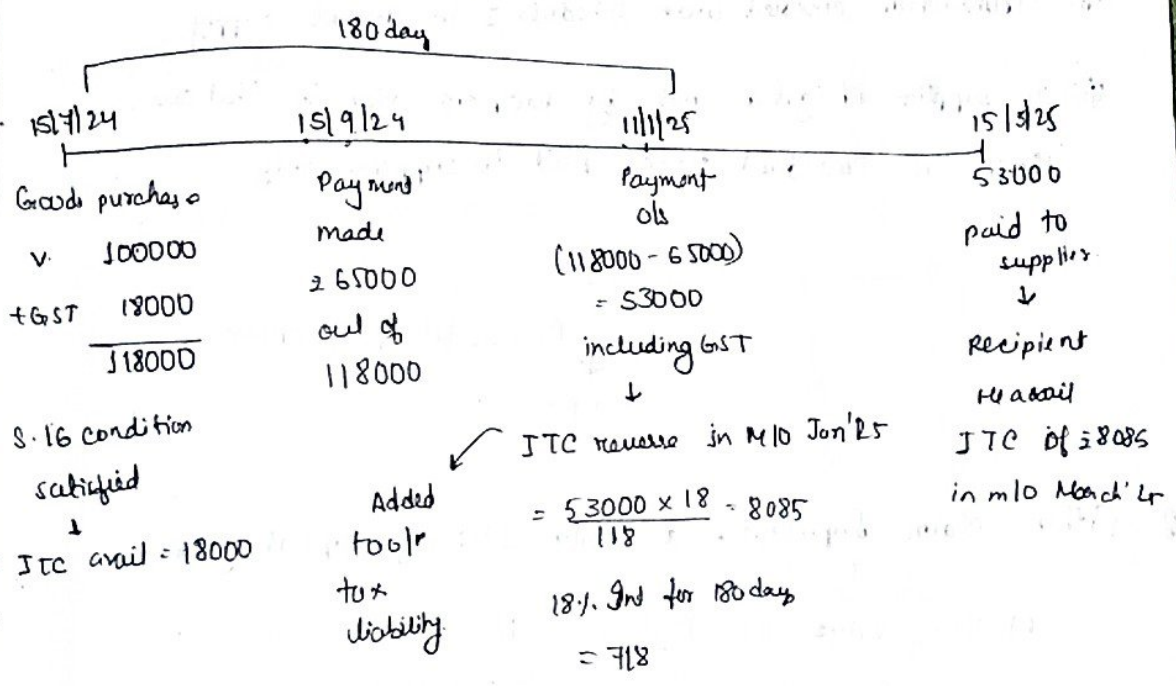 180 day
15/7/24
15/9/24
11/1/25
15/3/25
Goods purchase
V. 100000
+GST 18000
118000
S.16 condition
satisfied
↓
ITC avail = 18000
Payment
made
₹ 65000
out of
118000
Payment
o/s
(118000 - 65000)
= 53000
including GST
↓
ITC reverse in M/O Jan'25
= 53000 × 18 = 8085
118
18% Int for 180 days
= 718
Added
to o/p
tax
liability.
53000
paid to
supplier
↓
Recipient
Re avail
ITC of ₹ 8085
in m/o March'25